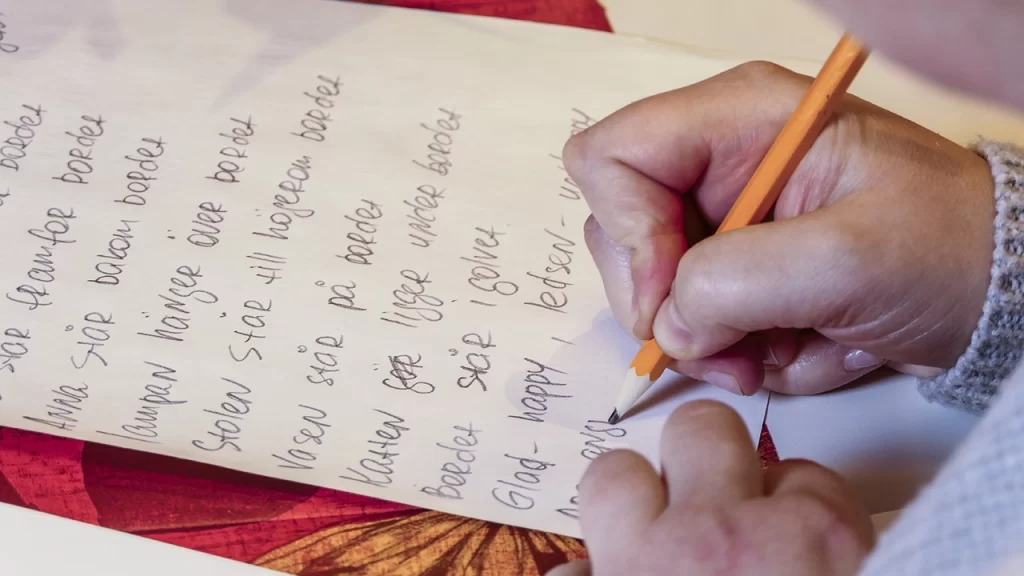 bordet
står framför bordet
Anna står bakom bordet
lampan hänger över bordet
Stolen står till högerom bordet
Vasen står på bordet
Katten ligger under bordet
Bordet står i golvet.
Glad - happy | ledsen -